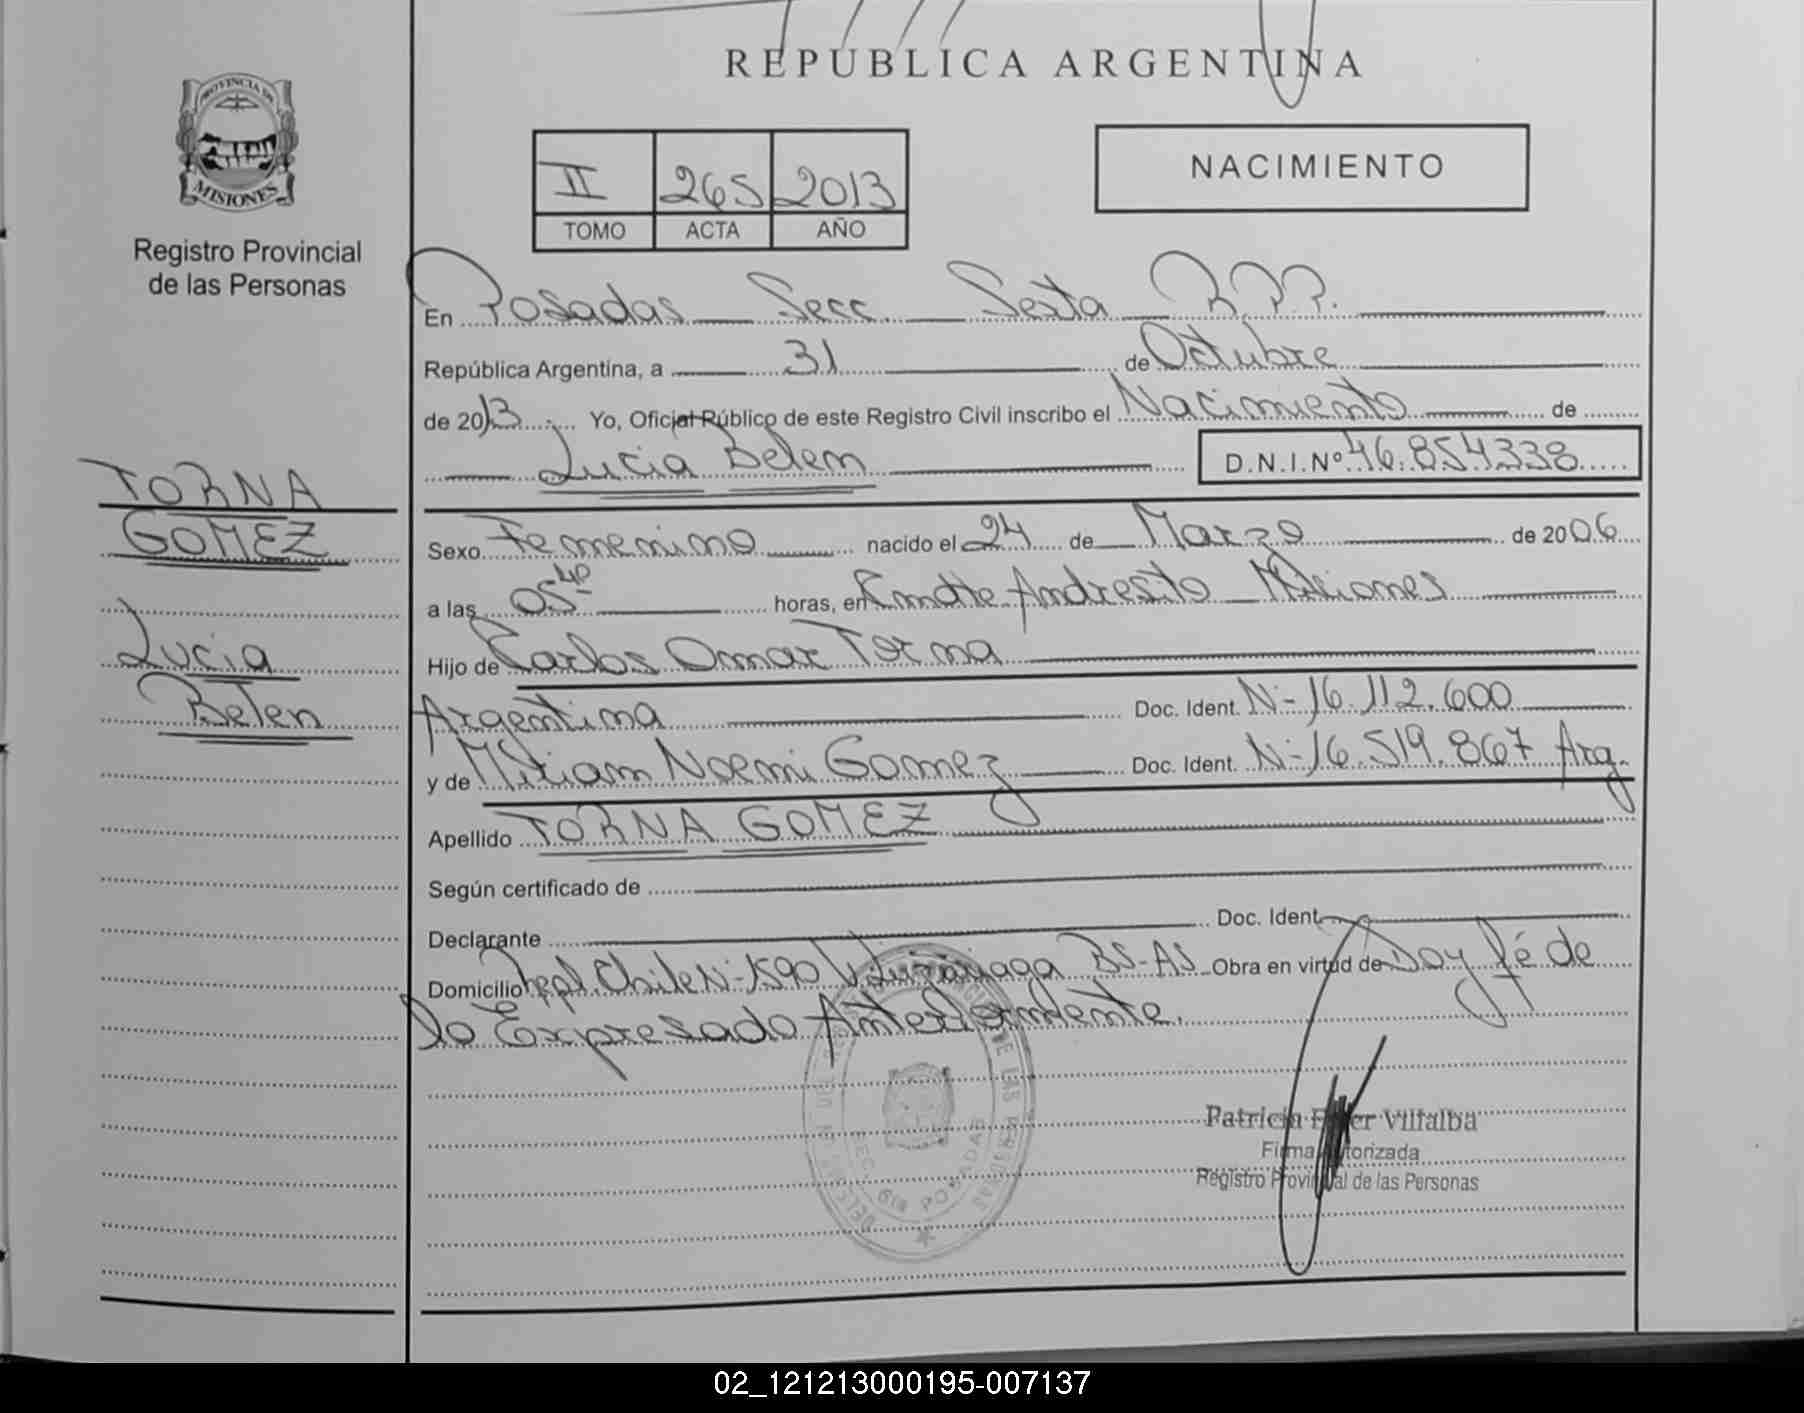 PROVINCIA DE
MISIONES
Registro Provincial
de las Personas
TORNA
GOMEZ
Lucia
Belen
REPUBLICA ARGENTINA
II 265 2013
TOMO ACTA AÑO
NACIMIENTO
En Posadas Secc. Sexta R.P.P.
República Argentina, a 31 de Octubre
de 2013 Yo, Oficial Público de este Registro Civil inscribo el Nacimiento de
Lucia Belem D.N.I.Nº 46.854338
Sexo Femenino nacido el 24 de Marzo de 2006
a las 05 40 horas, en Cmdte Andresito Misiones
Hijo de Carlos Omar Torna
Argentina Doc. Ident. N-16.112.600
y de Miriam Noemi Gomez Doc. Ident. N-16.519.867 Arg.
Apellido TORNA GOMEZ
Según certificado de
Declarante Doc. Ident.
Domicilio Chile N-1590 BS-AS Obra en virtud de Doy fé de
lo Expresado Anteriormente.
SECC 6ta POSADAS
Patricia Villalba
Firma Autorizada
Registro Provincial de las Personas
02_121213000195-007137